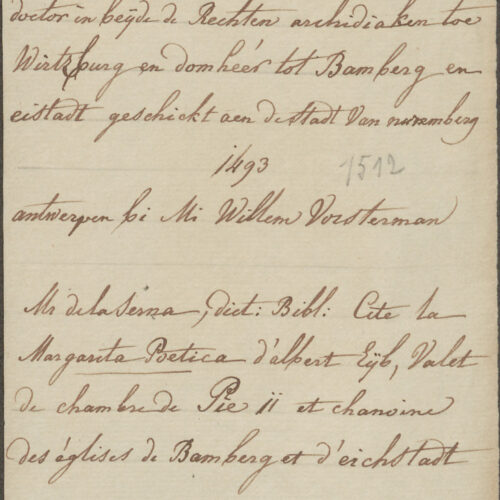 doctor in beÿde de Rechten archidiaken toe
Wirtzburg en domheér tot Bamberg en
eistadt geschickt aen de stadt Van nuremberg
1493 1512
antwerpen bi Mi Willem Vorsterman
Mr de la Serna, dict: Bibl: Cite la
Margarita Poetica d'albert Eÿb, Valet
de chambre de Pie ii et chanoine
des églises de Bamberg et d'eichstadt